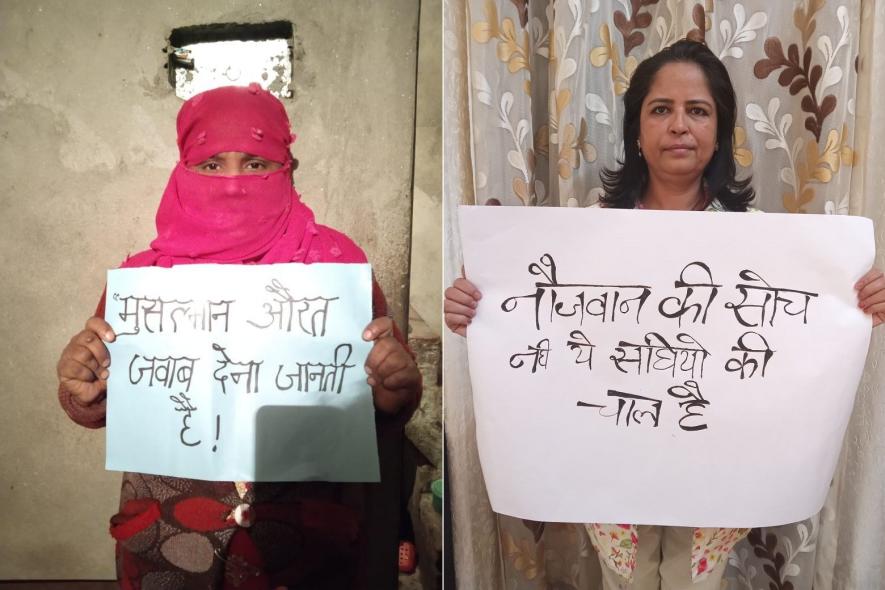 "मुसलमान औरत
जवाब देना जानती
है!
नौजवान की सोच
नहि ये संघियो की
चाल है